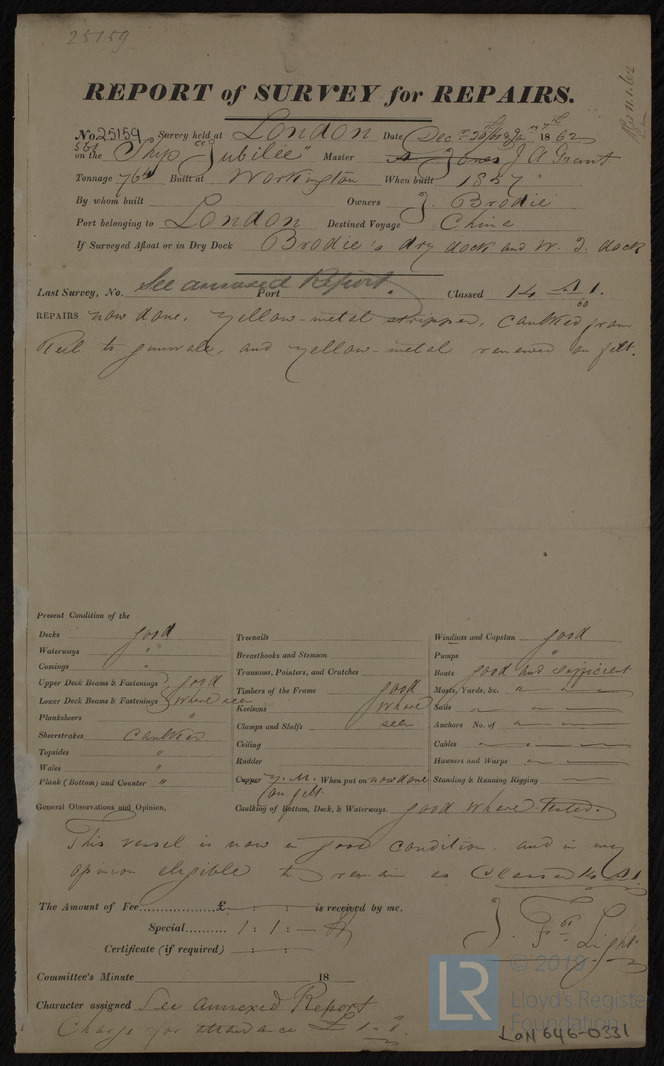 25159
REPORT of SURVEY for REPAIRS.
No. 25159 Survey held at London Date Dec 1862
561 on the Ship "Jubilee" Master Jones J A Grant
Tonnage 764 Built at Workington When built 1857
By whom built Owners J. Brodie
Port belonging to London Destined Voyage China
If Surveyed Afloat or in Dry Dock Brodie's dry dock and W. J. dock
Last Survey, No. See annexed Report. Port Classed 14 A 1.
60
REPAIRS now done. Yellow-metal stripped, caulked from
Keel to gunwale, and yellow-metal renewed on felt.
Present Condition of the
Decks good
Waterways "
Comings "
Upper Deck Beams & Fastenings good
Lower Deck Beams & Fastenings where seen
Planksheers "
Sheerstrakes Caulked
Topsides "
Wales "
Plank (Bottom) and Counter "
Treenails
Breasthooks and Stemson
Transoms, Pointers, and Crutches
Timbers of the Frame good
Keelsons where
Clamps and Shelfs seen
Ceiling
Rudder
Copper Y. M. When put on now done
on felt
Caulking of Bottom, Deck, & Waterways. good where tested.
Windlass and Capstan good
Pumps "
Boats good and sufficient
Masts, Yards, &c. " " "
Sails " " "
Anchors No. of " " "
Cables " " "
Hawsers and Warps
Standing & Running Rigging
General Observations and Opinion,
This vessel is now in good condition, and in my
opinion eligible to remain as Classed 14 A 1.
The Amount of Fee £ : : is received by me,
Special 1 : 1 : —
Certificate (if required) : :
J. F. Light
Committee's Minute 18
Character assigned See annexed Report
Charge for attendance £ 1-1.
© 2019
LR
Lloyd's Register
Foundation
LON 646-0331